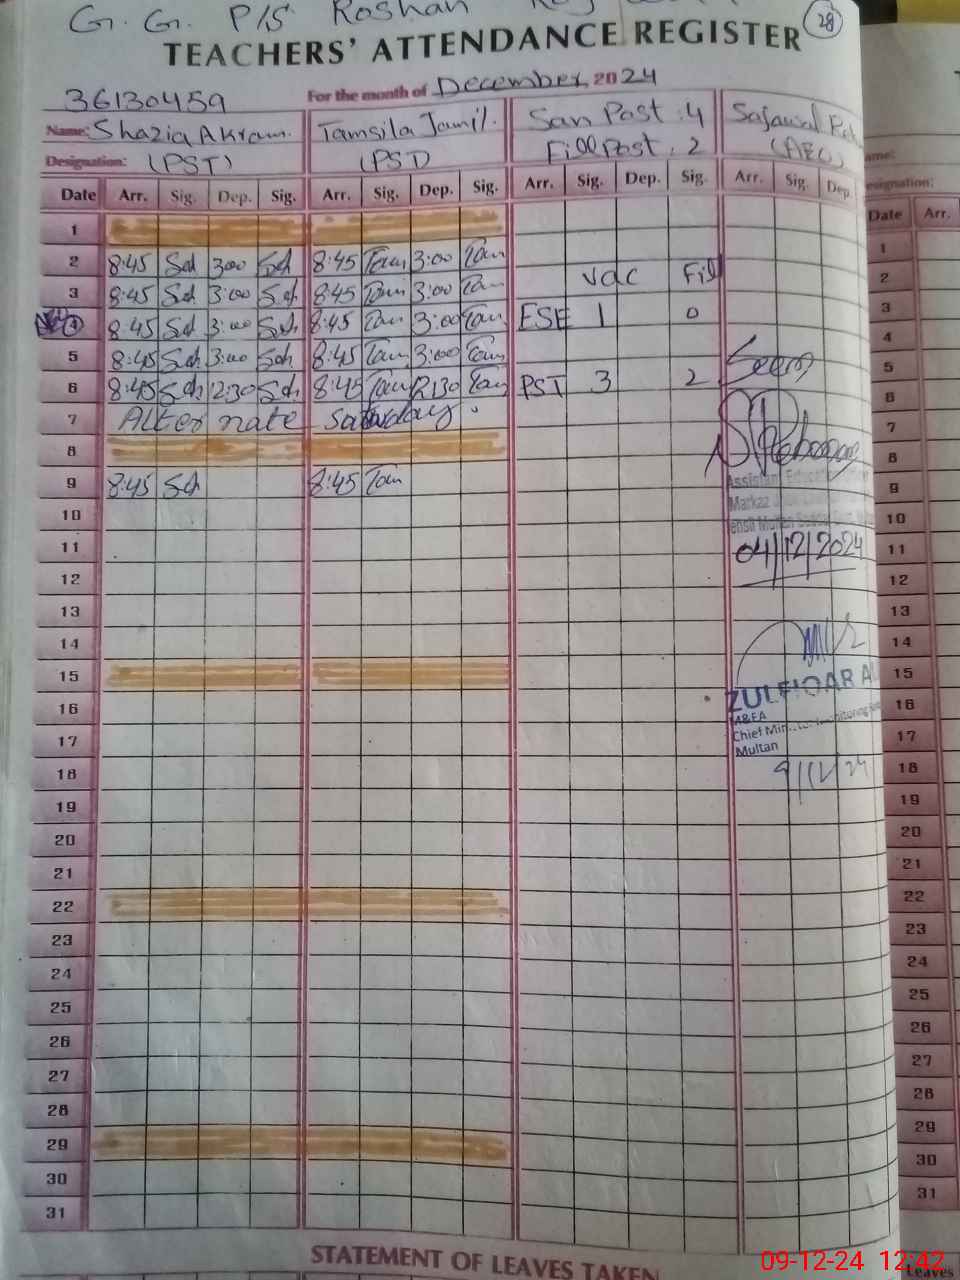 G. G. P/S Roshan
28
TEACHERS' ATTENDANCE REGISTER
For the month of December 2024
36130459
Name: Shazia Akram. Tamsila Jamil. San Post : 4 Sajawal
Designation: (PST) (PST) Fill Post : 2 (AEO)
Date Arr. Sig. Dep. Sig. Arr. Sig. Dep. Sig. Arr. Sig. Dep. Sig. Arr. Sig. Dep.
1
2 8:45 Sch 3:00 Sch 8:45 Tam 3:00 Tam
3 8:45 Sch 3:00 Sch 8:45 Tam 3:00 Tam vac Fill
4 8:45 Sch 3:00 Sch 8:45 Tam 3:00 Tam ESE 1 0
5 8:45 Sch 3:00 Sch 8:45 Tam 3:00 Tam
6 8:45 Sch 12:30 Sch 8:45 Tam 12:30 Tam PST 3 2 Seen
7 Alternate Saturday.
8
9 8:45 Sch 8:45 Tam
Assistant Education
Markaz
10
11 04/12/2024
12
13
14
15
ZULFIQAR
16 M&EA
Chief Min
17 Multan
18 9/12/24
19
20
21
22
23
24
25
26
27
28
29
30
31
STATEMENT OF LEAVES TAKEN
ame:
esignation:
Date Arr.
1
2
3
4
5
6
7
8
9
10
11
12
13
14
15
16
17
18
19
20
21
22
23
24
25
26
27
28
29
30
31
Leaves
09-12-24 12:42